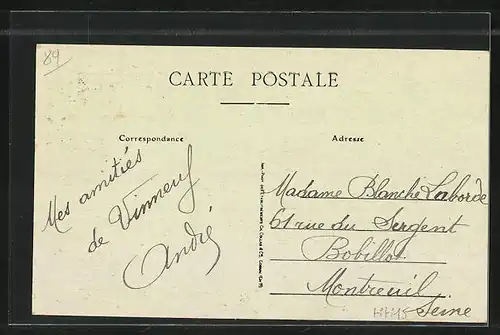 89
CARTE POSTALE
Correspondance
Adresse
Mes amitiés
de Vinneuf
André
Madame Blanche Laborde
61 rue du Sergent
Bobillot
Montreuil
Seine